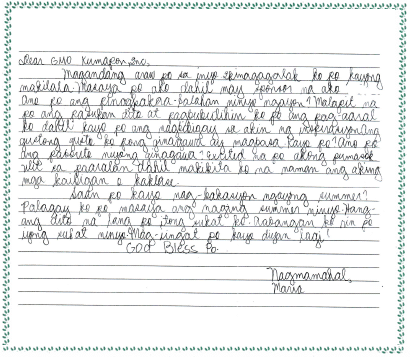 Dear GMO Kumapon, Inc,
Magandang araw po sa inyo. Ikinagagalak ko po kayong
makilala. Masaya po ako dahil may sponsor na ako.
Ano po ang pinagkaka-balahan ninyo ngayon? Malapit na
po ang pasukan dito at pagbubutihin ko po ang pag-aaral
ko dahil kayo po ang nagbibigay sa akin ng inspirasyon. Ang
gustong gusto ko pong ginagawa ay magbasa. Kayo po? Ano po
ang paborito niyong ginagawa? Excited na po akong pumasok
ulit sa paaralan dahil makikita ko na naman ang aking
mga kaibigan o kaklase.
Saan po kayo nag-bakasyon ngayong summer?
Palagay ko po masaya ang naging summer ninyo. Hang-
ang dito na lang po itong sulat ko. Aabangan ko rin po
iyong sulat ninyo. Mag-iingat po kayo diyan lagi!
God Bless Po.
Nagmamahal,
Maria